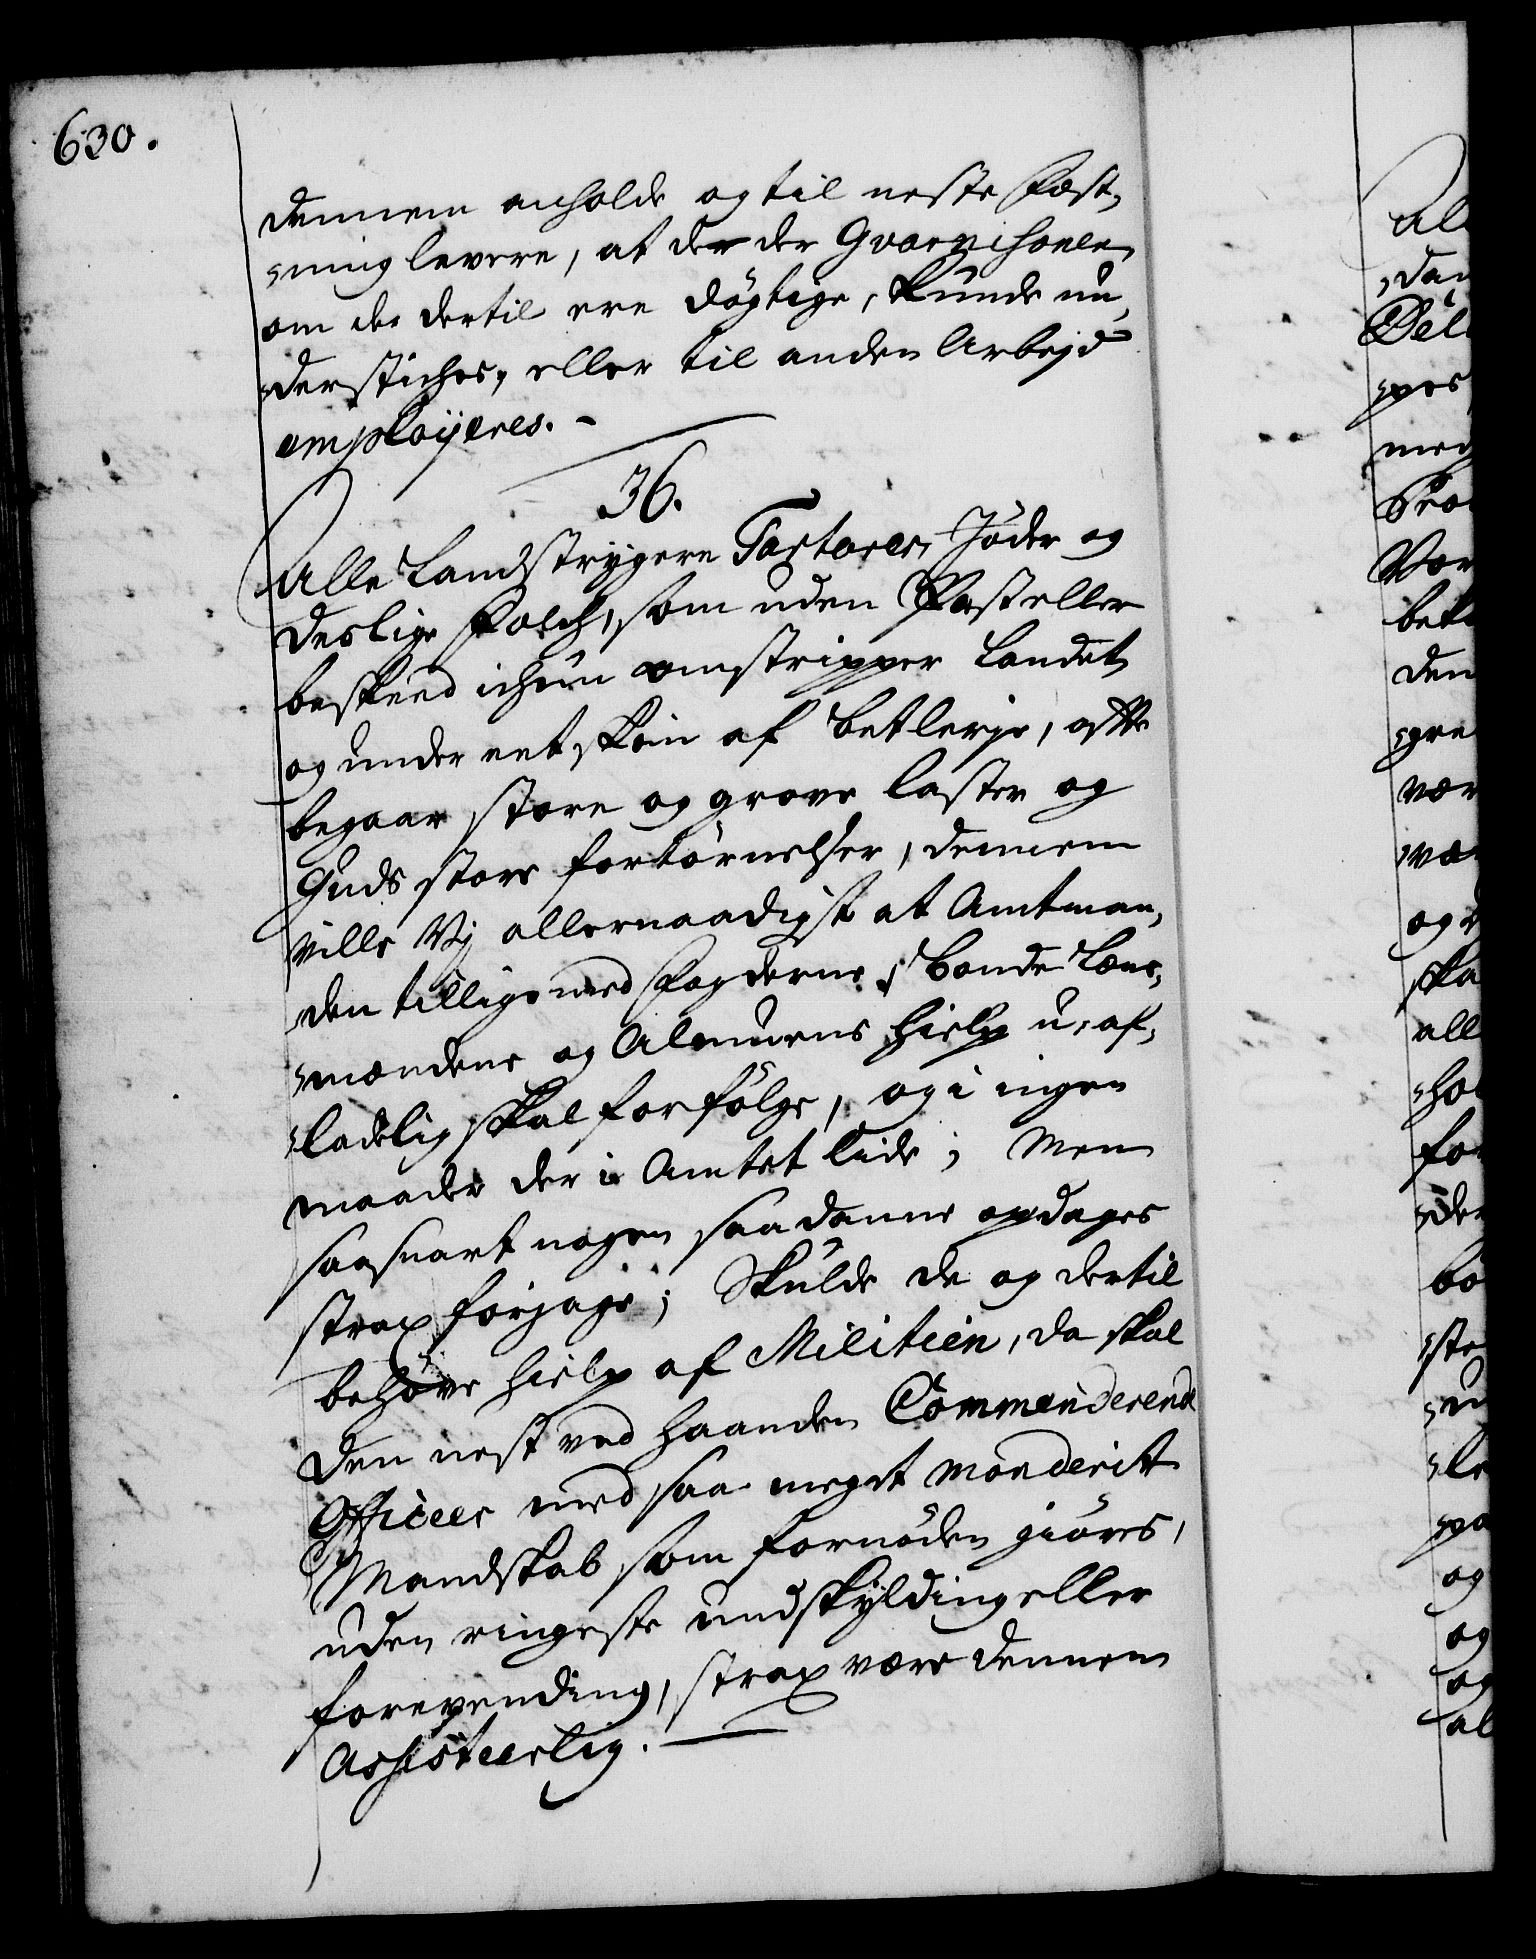 630.
dennem anholde og til neste Fæst,
„ning levere, at de der Gvarnihonen
om de dertil ere døgtige, kunde un„
„derstiches, eller til anden Arbejd
employeres. -
36.
Alle Landstrygere Tartarer, Jøder og
deslige Folch, som uden Pas eller
beskeed ichun omstripper Landet,
og under et skin af Betlerje, ofte
begaar store og grove laster og
Guds store fortørnelser, dennem
ville Vj allernaadigst at Amtman„
„den tillige med Fogderne, Bonde Læns„
„mændene og Almuens hielp u-af„
„ladelig skal forfølge, og i ingen
maader der i Amtet lide; Men
saasnart nogen saadanne opdages
strax forjage; Skulde de og dertil
behøve hielp af Militien, da skal
den nest ved haanden Commanderende
Officeer med saa meget monderit
Mandskab som fornøden giøres,
uden ringeste undskylding eller
forevending, strax være dennem
Assisteerlig.